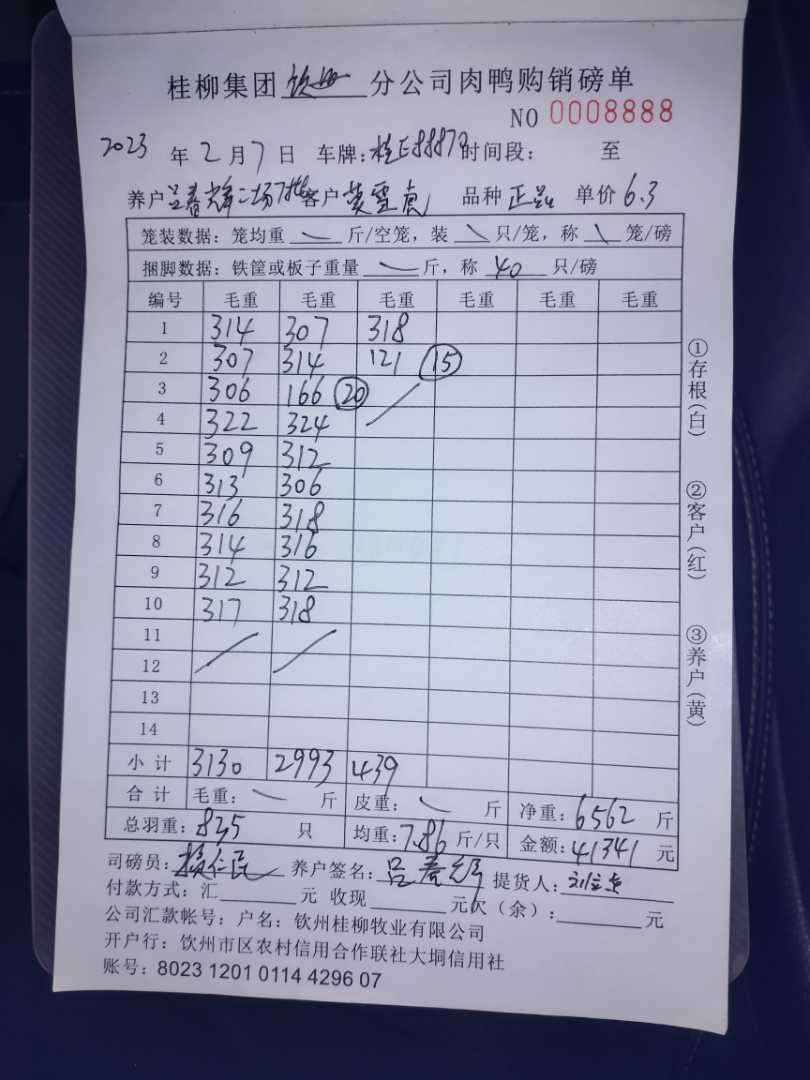 桂柳集团 钦州 分公司肉鸭购销磅单
NO 0008888
2023 年 2 月 7 日 车牌: 桂E88879 时间段: 至
养户 吕春辉二场7批 客户 黄雪虎 品种 正品 单价 6.3
笼装数据: 笼均重 斤/空笼, 装 只/笼, 称 笼/磅
捆脚数据: 铁筐或板子重量 斤, 称 40 只/磅
编号 毛重 毛重 毛重 毛重 毛重 毛重
1 314 307 318
2 307 314 121 15
3 306 166 20
4 322 324
5 309 312
6 313 306
7 316 318
8 314 316
9 312 312
10 317 318
11
12
13
14
小计 3130 2993 439
合计 毛重: 斤 皮重: 斤 净重: 6562 斤
总羽重: 835 只 均重: 7.86 斤/只 金额: 41341 元
司磅员: 养户签名: 吕春辉 提货人:
付款方式: 汇 元 收现 元欠(余): 元
公司汇款帐号: 户名: 钦州桂柳牧业有限公司
开户行: 钦州市区农村信用合作联社大垌信用社
账号: 8023 1201 0114 4296 07
①存根(白)
②客户(红)
③养户(黄)